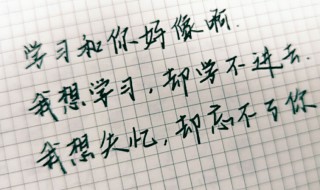 学习和你好像啊.
我想学习,却学不进去.
我想失忆,却忘不了你